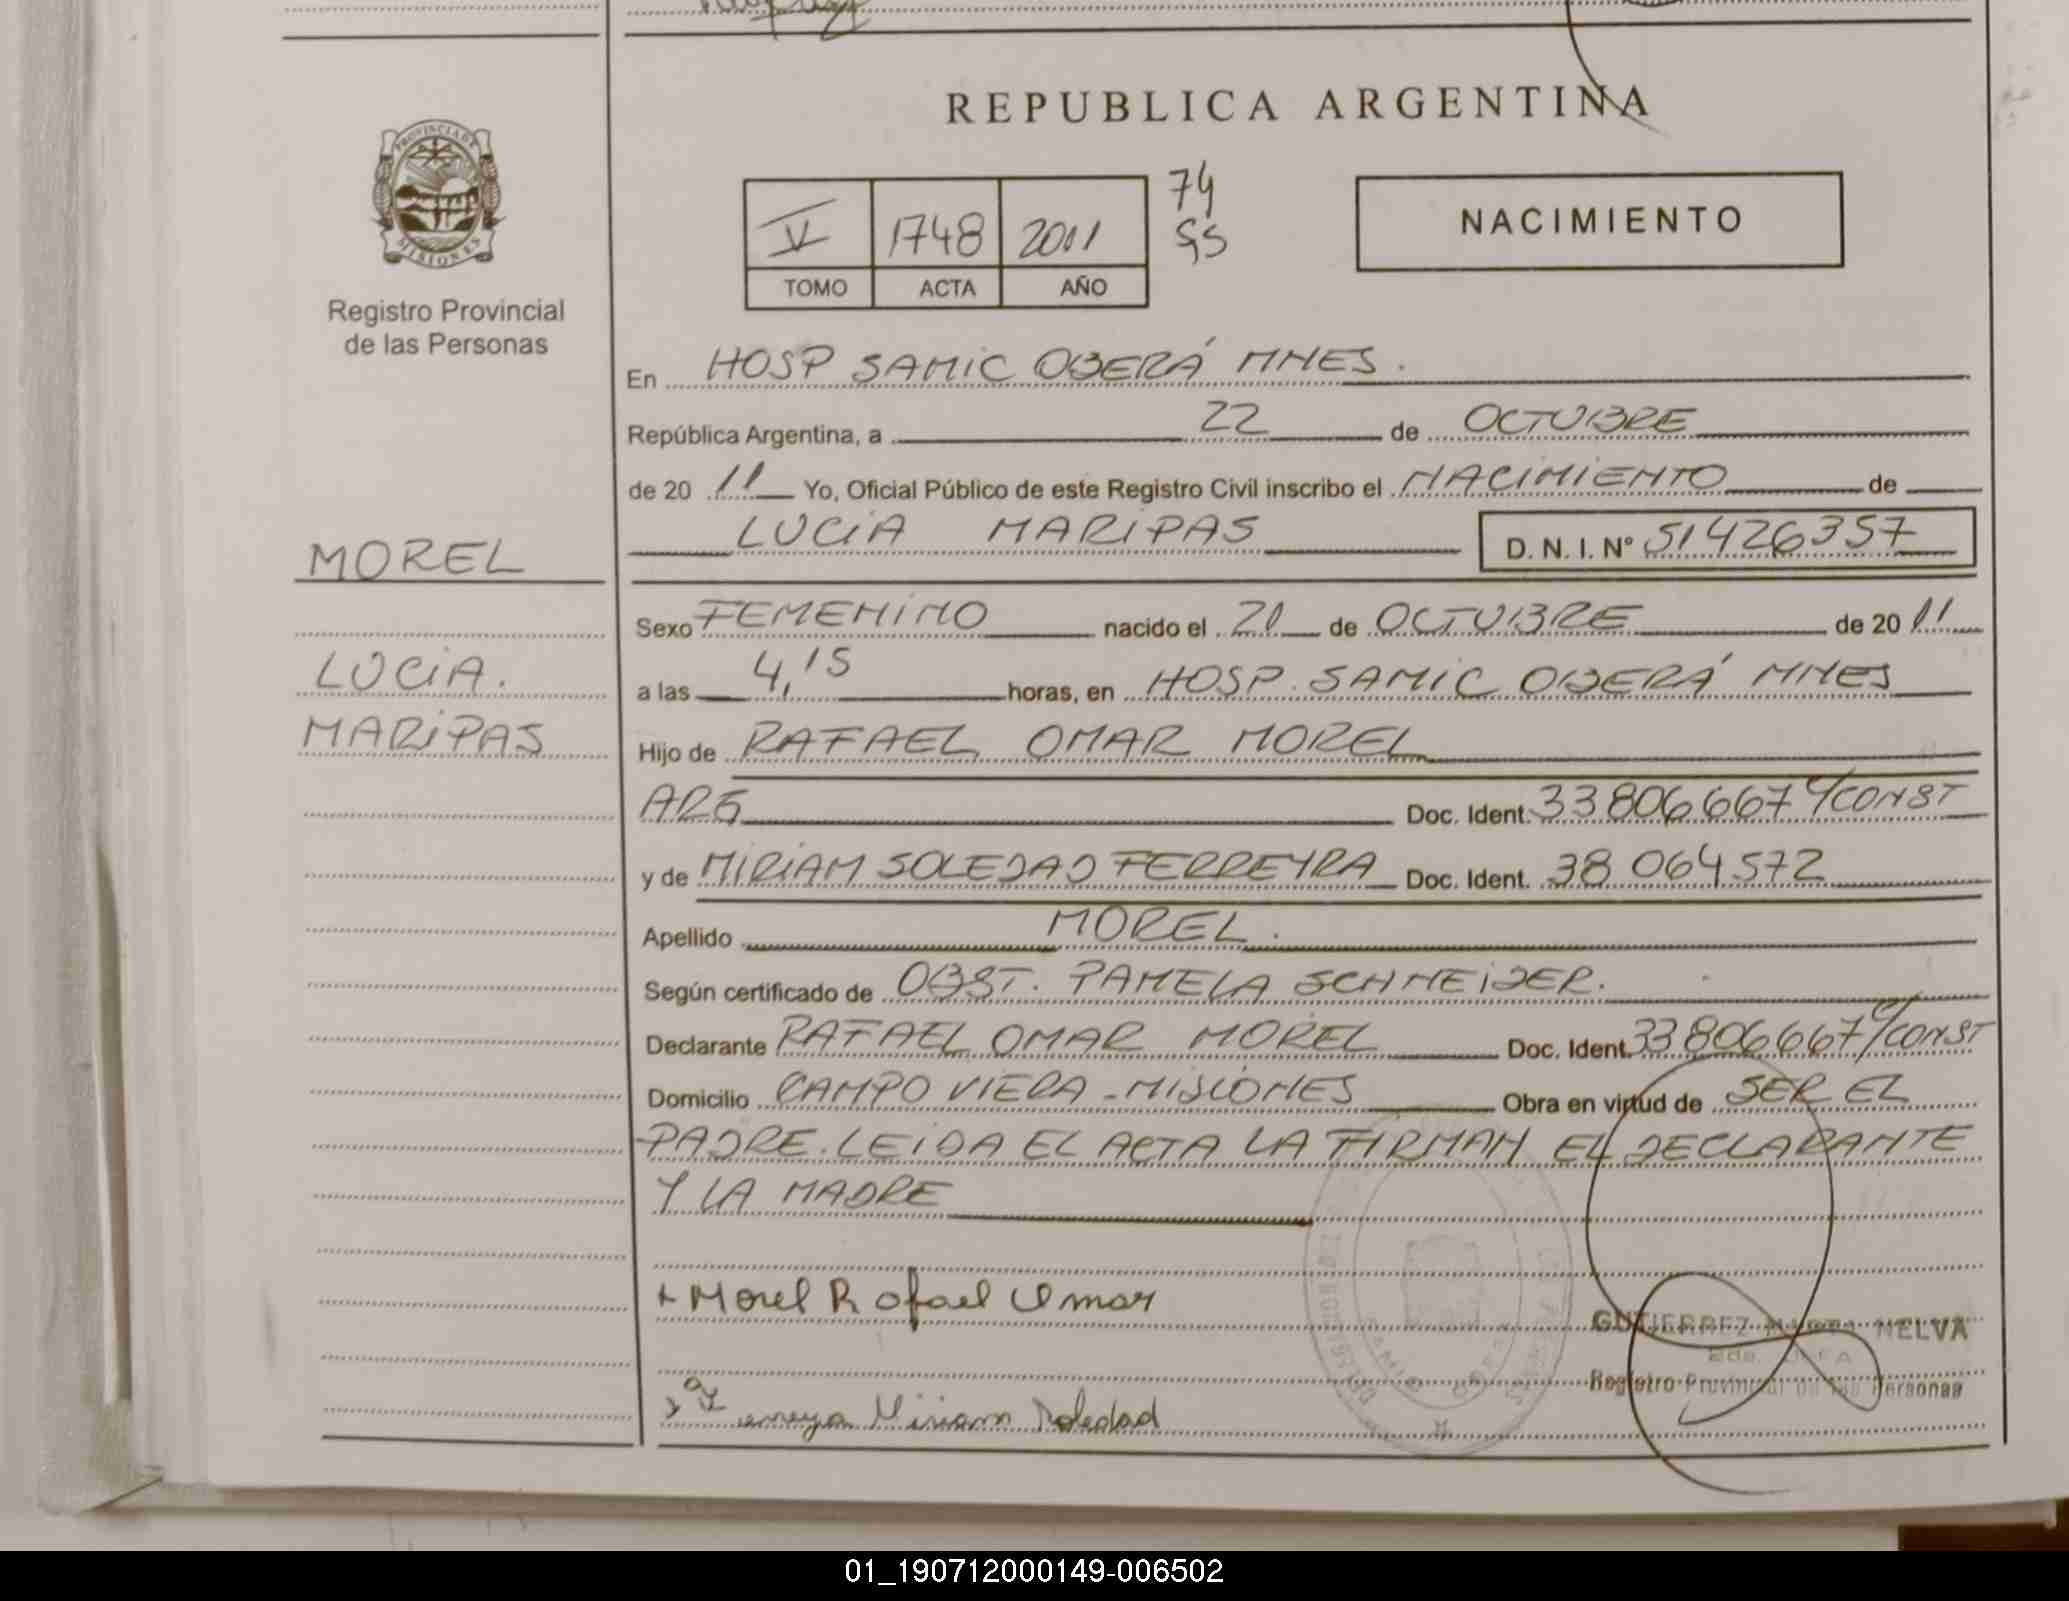 REPUBLICA ARGENTINA
PROVINCIA DE
MISIONES
Registro Provincial
de las Personas
V 1748 2011
TOMO ACTA AÑO
74
NACIMIENTO
En HOSP SAMIC OBERÁ MNES.
República Argentina, a 22 de OCTUBRE
de 20 11 Yo, Oficial Público de este Registro Civil inscribo el NACIMIENTO de
LUCIA MARIPAS D. N. I. Nº 51426357
MOREL
LUCIA.
MARIPAS
Sexo FEMENINO nacido el 21 de OCTUBRE de 20 11
a las 4,15 horas, en HOSP. SAMIC OBERÁ MNES
Hijo de RAFAEL OMAR MOREL
ARG Doc. Ident. 33806667 C/CONST
y de MIRIAM SOLEDAD FERREYRA Doc. Ident. 38 064572
Apellido MOREL.
Según certificado de OBST. PAMELA SCHNEIDER.
Declarante RAFAEL OMAR MOREL Doc. Ident. 33806667 C/CONST
Domicilio CAMPO VIERA - MISIONES Obra en virtud de SER EL
PADRE. LEIDA EL ACTA LA FIRMAN EL DECLARANTE
Y LA MADRE
Morel Rafael Omar
GUTIERREZ NELVA
Registro Provincial de las Personas
Miriam Soledad
01_190712000149-006502